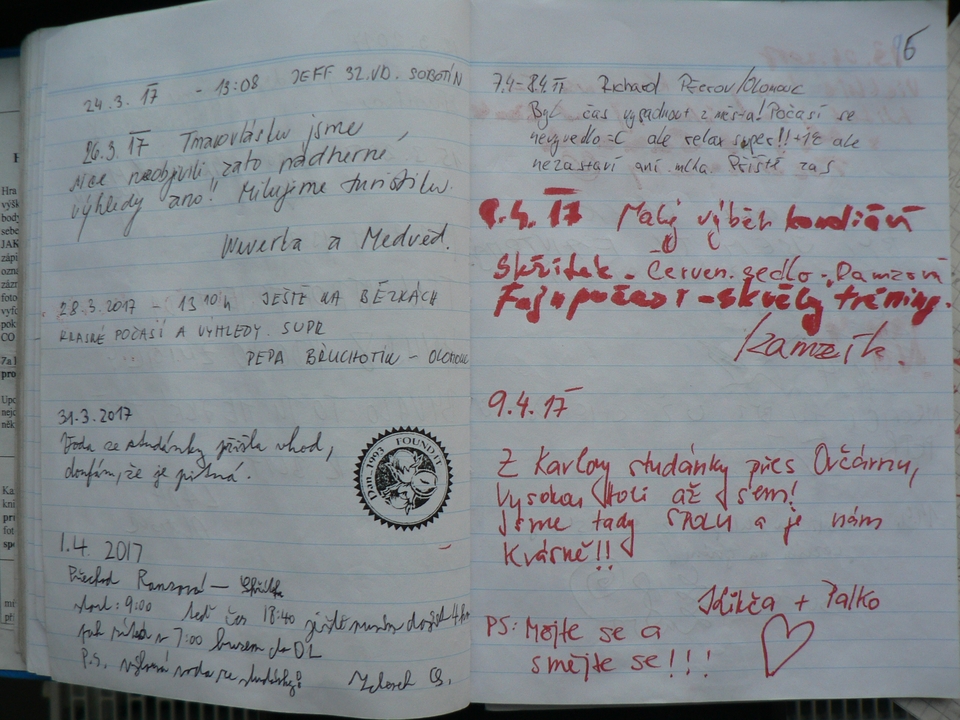 24.3. 17 - 13:08 JEFF 32.VD. SOBOTÍN
26.3 17 Tmavovlásku jsme
sice neobjevili, zato nádherné
výhledy ano! Milujeme turistiku.
Weverka a Medvěd.
28.3.2017 - 13 10 h JEŠTĚ NA BĚŽKÁCH
KRASNÉ POČASÍ A VÝHLEDY. SUPR
PEPA BŘUCHOTIN - OLOMOUC
31.3.2017
Voda ze studánky přišla vhod,
doufám, že je pitná.
Dan 1993 FOUNDER
1.4. 2017
Přechod Ramzová -
start: 9:00 teď čas 18:40 ještě musím dojít 4 km
v 7:00 busem do DL
P.S. výborná voda ze studánky!
16
7.4-8.4.17 Richard Přerov/Olomouc
Byl čas vypadnout z města! Počasí se
nevyvedlo :-( ale relax super!! ale
nezastaví ani mlha. Příště zas
8.4. 17 Malý výběh kondiční
Skřítek - Červen. sedlo -
Fajn počasí - skvělý tréning.
Kamzík.
9.4.17
Z Karlovy studánky přes Ovčárnu,
Vysokou holi až sem!
Jsme tady SPOLU a je nám
Krásně!!
+ Palko
PS: Mějte se a
smějte se!!!